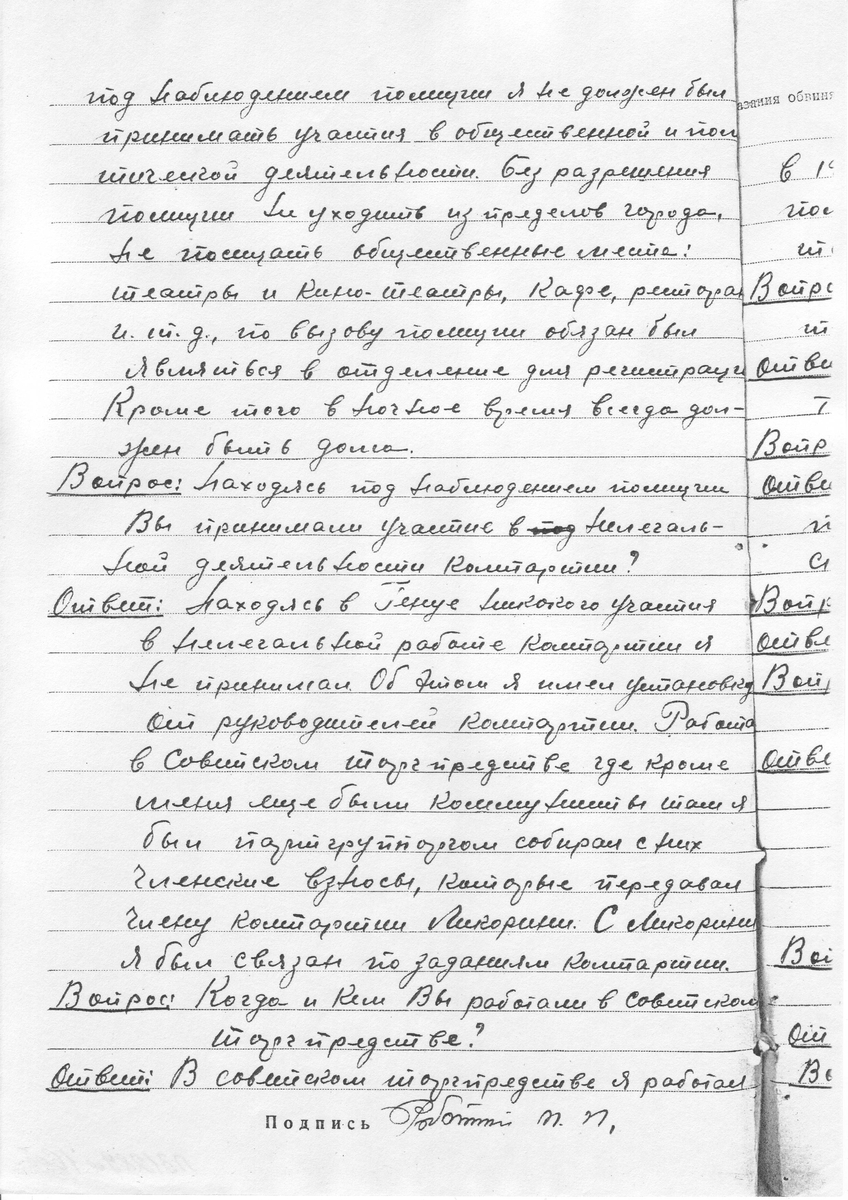 под наблюдением полиции я не должен был
принимать участия в общественной и поли
тической деятельности. Без разрешения
полиции не уходить из пределов города,
не посещать общественные места:
театры и кино-театры, кафе, рестора
и. т. д., по вызову полиции обязан был
являться в отделение для регистраци
Кроме того в ночное время всегда дол-
жен быть дома.
Вопрос: Находясь под наблюдением полиции
Вы принимали участие в под нелегаль-
ной деятельности компартии?
Ответ: Находясь в Генуе никокого участия
в нелегальной работе компартии я
не принимал. Об этом я имел установку
от руководителей компартии. Работа
в Советском торгпредстве где кроме
меня еще были коммунисты там я
был партгруппоргом собирал с них
членские взносы, которые передавал
члену компартии Ликорини. С Ликорини
я был связан по заданиям компартии.
Вопрос: Когда и кем Вы работали в советском
торгпредстве?
Ответ: В советском торгпредстве я работал
Подпись Роботти П. П,
азания обвиня
В 19
Вопро
Отве
Вопр
Отве
Вопр
Отве
Вопр
Отве
Воп
От
Во